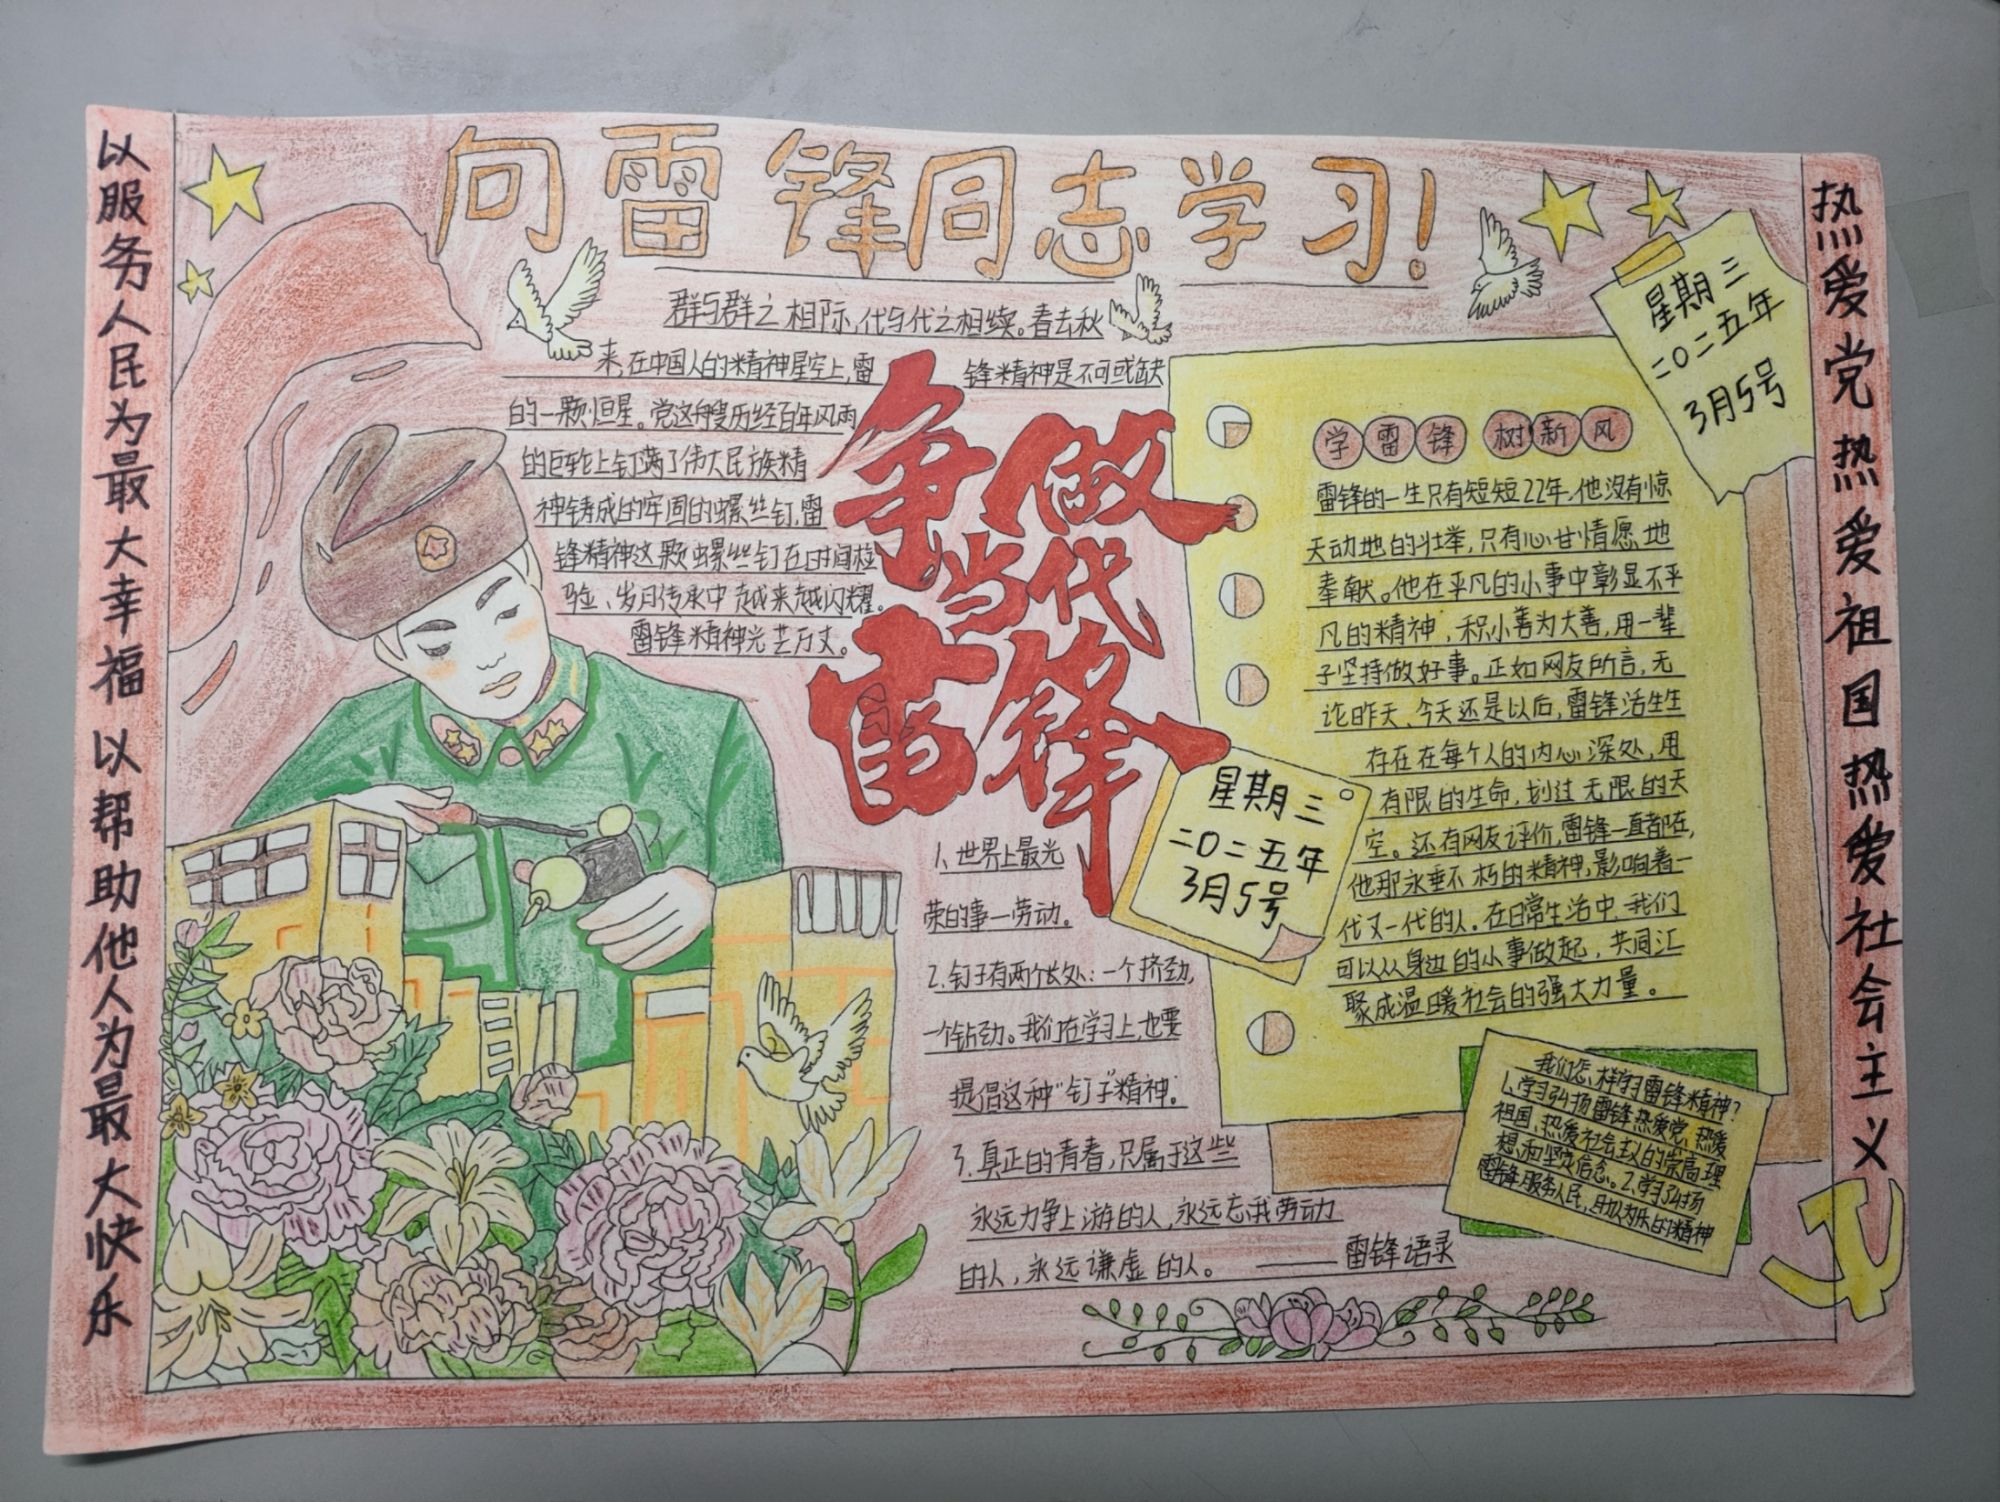 向雷锋同志学习!
以服务人民为最大幸福以帮助他人为最大快乐
群与群之相际,代与代之相续。春去秋
来,在中国人的精神星空上,雷
锋精神是不可或缺
的一颗恒星。党这艘历经百年风雨
的巨轮上钉满了伟大民族精
神铸成的牢固的螺丝钉,雷
锋精神这颗螺丝钉在时间检
验、岁月传承中越来越闪耀。
雷锋精神光芒万丈。
争做
当代
雷锋
1、世界上最光
荣的事—劳动。
2.钉子有两个长处:一个挤劲,
一个钻劲。我们在学习上,也要
提倡这种"钉子"精神。
3.真正的青春,只属于这些
永远力争上游的人,永远忘我劳动
的人,永远谦虚的人。——雷锋语录
星期三
二〇二五年
3月5号
星期三
二〇二五年
3月5号
学雷锋 树新风
雷锋的一生只有短短22年.他没有惊
天动地的壮举,只有心甘情愿地
奉献。他在平凡的小事中彰显不平
凡的精神,积小善为大善,用一辈
子坚持做好事。正如网友所言,无
论昨天、今天还是以后,雷锋活生生
存在在每个人的内心深处,用
有限的生命,划过无限的天
空。还有网友评价,雷锋一直都在,
他那永垂不朽的精神,影响着一
代又一代的人。在日常生活中,我们
可以从身边的小事做起,共同汇
聚成温暖社会的强大力量。
我们怎样学习雷锋精神?
1.学习弘扬雷锋热爱党、热爱
祖国、热爱社会主义的崇高理
想和坚定信念。2.学习弘扬
雷锋服务人民,助人为乐的精神
热爱党热爱祖国热爱社会主义